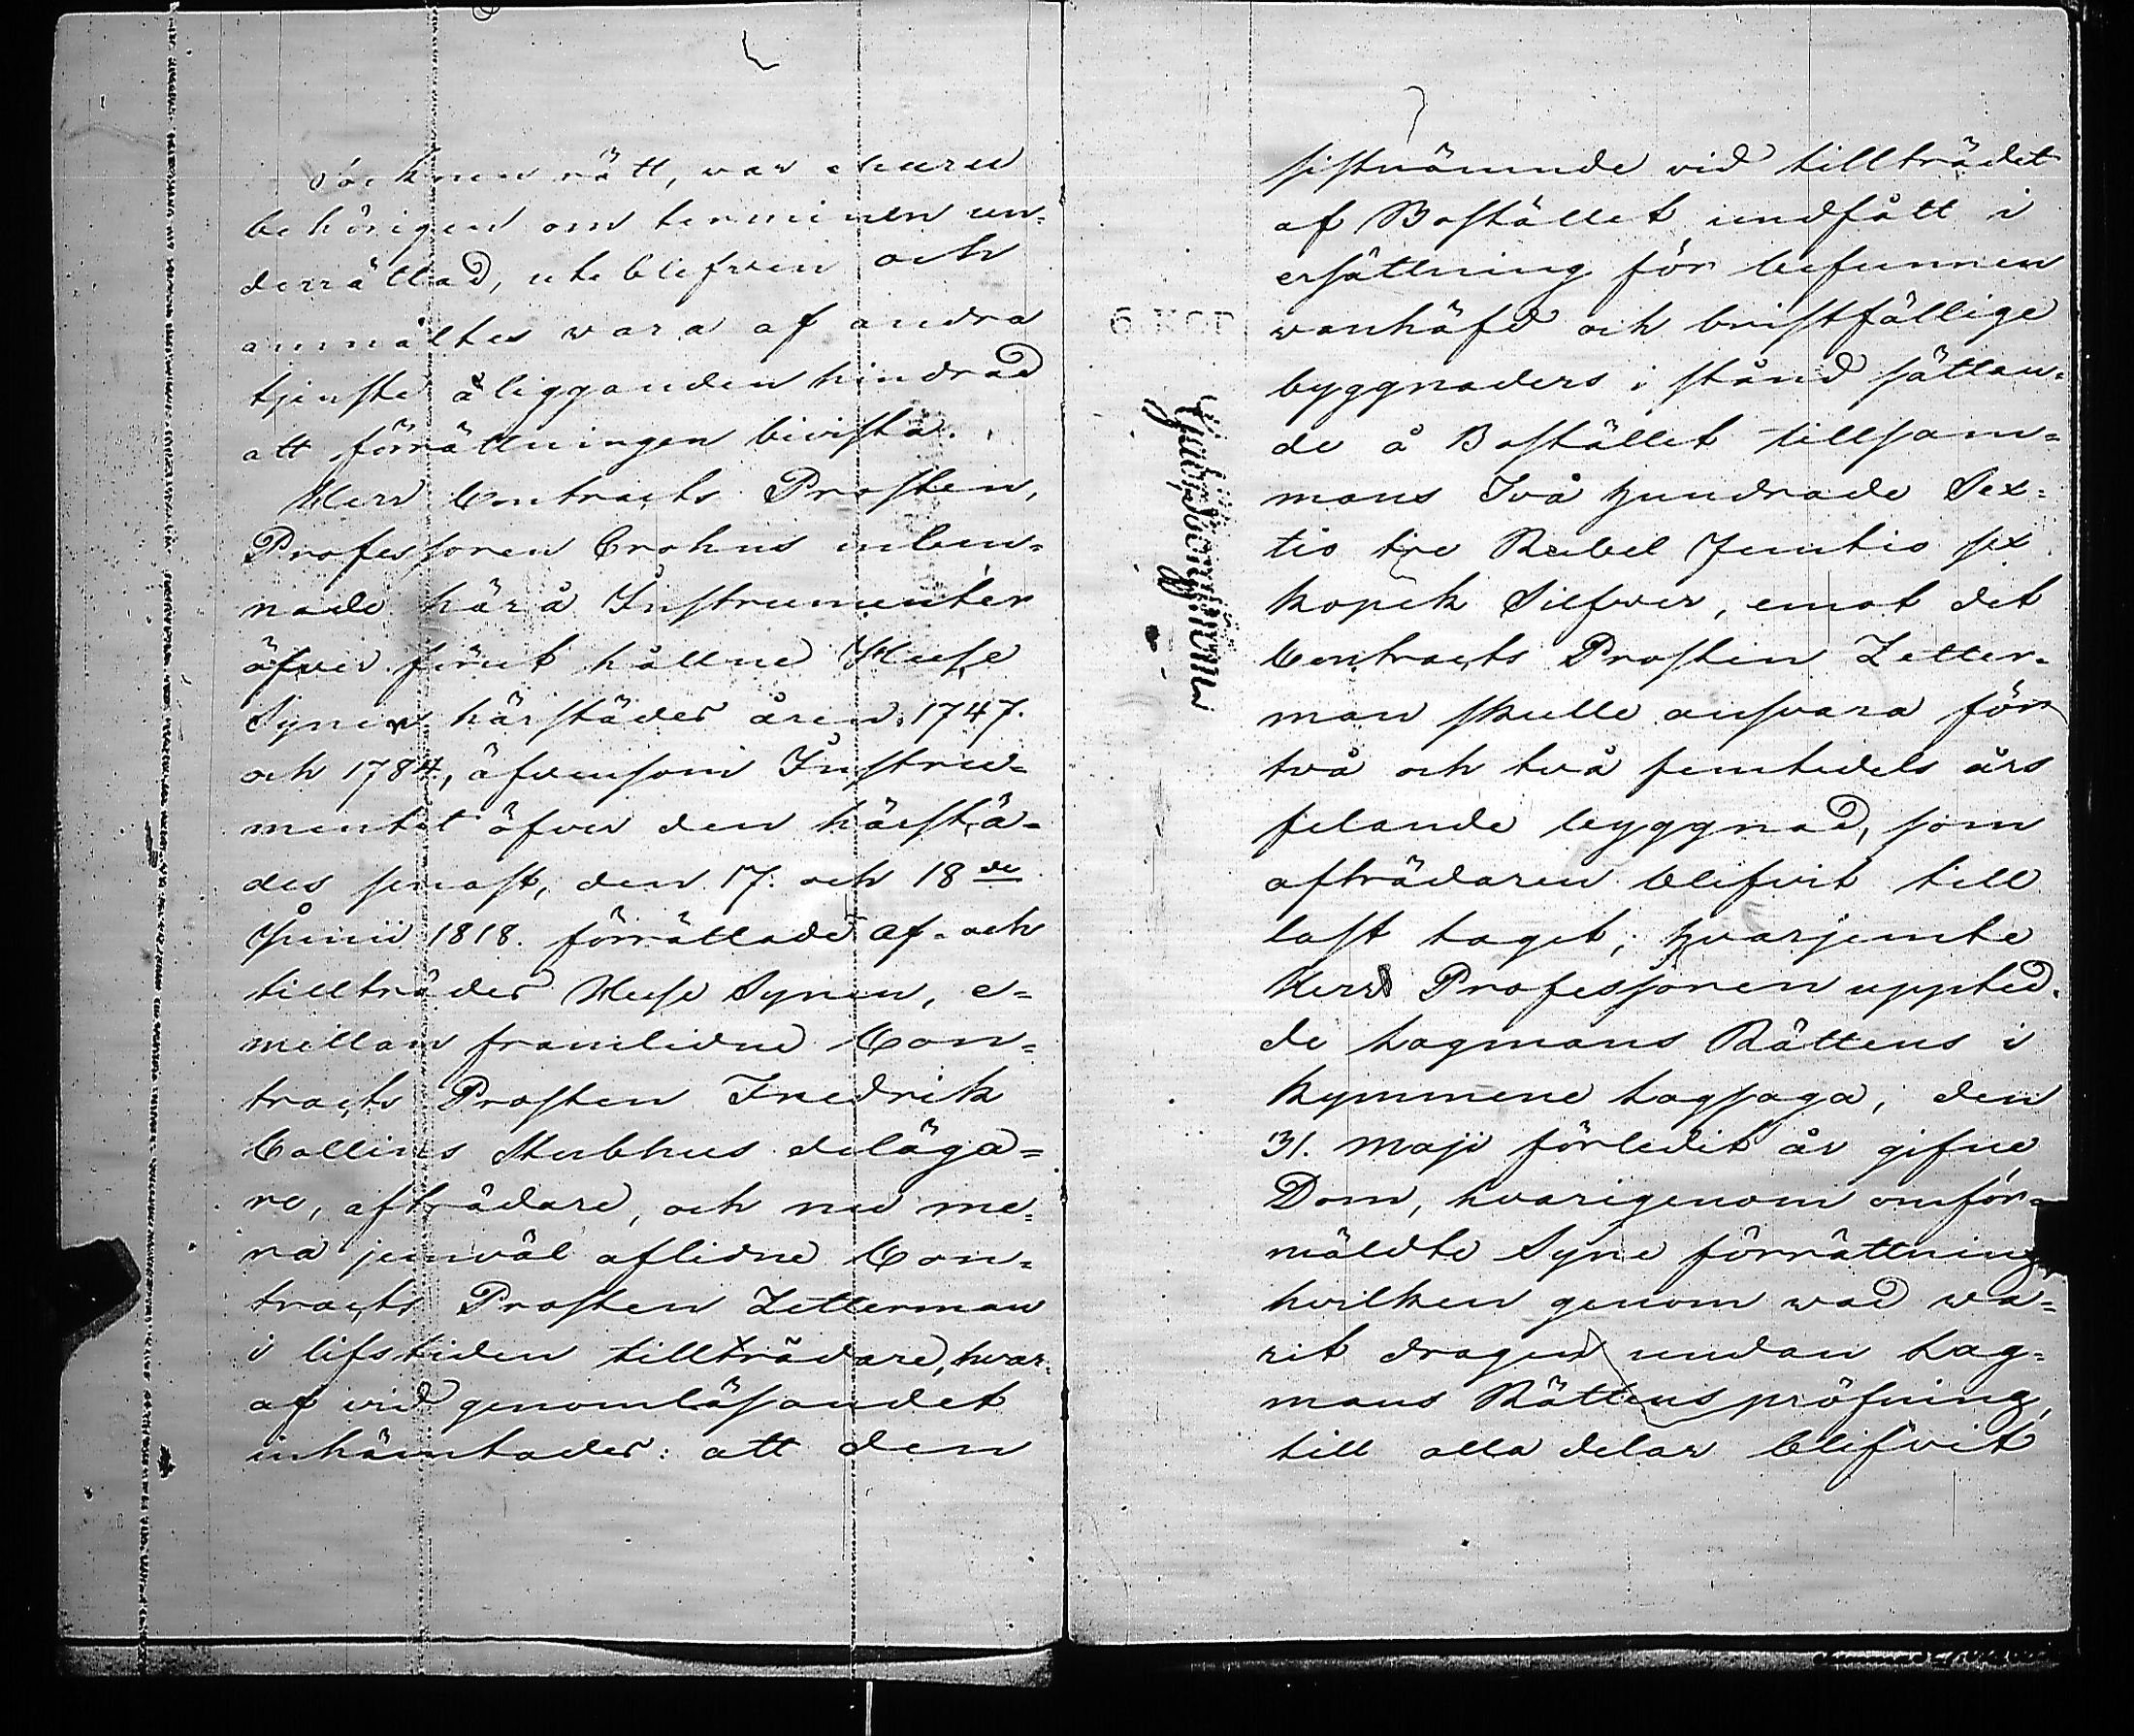 Socknen rätt, var ehuru
behörigen om terminen un=
derrättad, utebliefven och
anmältes vara af andra
tjenste åligganden hindrad
att förrättningen bivista.
Herr Contracts Prosten,
Professoren Crohns inlem=
nade härå Instrumenter
öfver förut hållne Huse
Syner härstädes åren 1747.
och 1784, äfvensom Instru=
mentet öfver den härstä=
des senast, den 17. och 18de
Junii 1818. förrättade af- och
tillträdes Huse Synen, e=
mellan framlidne Con=
tracts Prosten Fredrik
Collins Sterbhus deläga=
re, afträdare, och nu me=
ra jemväl aflidne Con=
tracts Prosten Zetterman
i lifstiden tillträdare, hvar=
af vid genomläsandet
inhämtades: att den
sistnämnde vid tillträdet
af Bostället undfått i
ersättning för befunnen
vanhäfd och bristfällige
byggnaders i stånd sättan=
de å Bostället tillsam=
mans Två hundrade Sex=
tio tre Rubel Femtio sex
kopek Silfver, emot det
Contracts Prosten Zetter=
man skulle ansvara för
två och två femtedels års
felande byggnad, som
afträdaren blifvit till
last taget; hvarjemte
Herr Professoren uppted=
de Lagmans Rättens i
Kymmene Lagsaga, den
31. Maji förledit år gifne
Dom, hvarigenom omför=
mäldte Syne förrättning,
hvilken genom vad va=
rit dragen undan Lag=
mans Rättens pröfning,
till alla delar blifvit